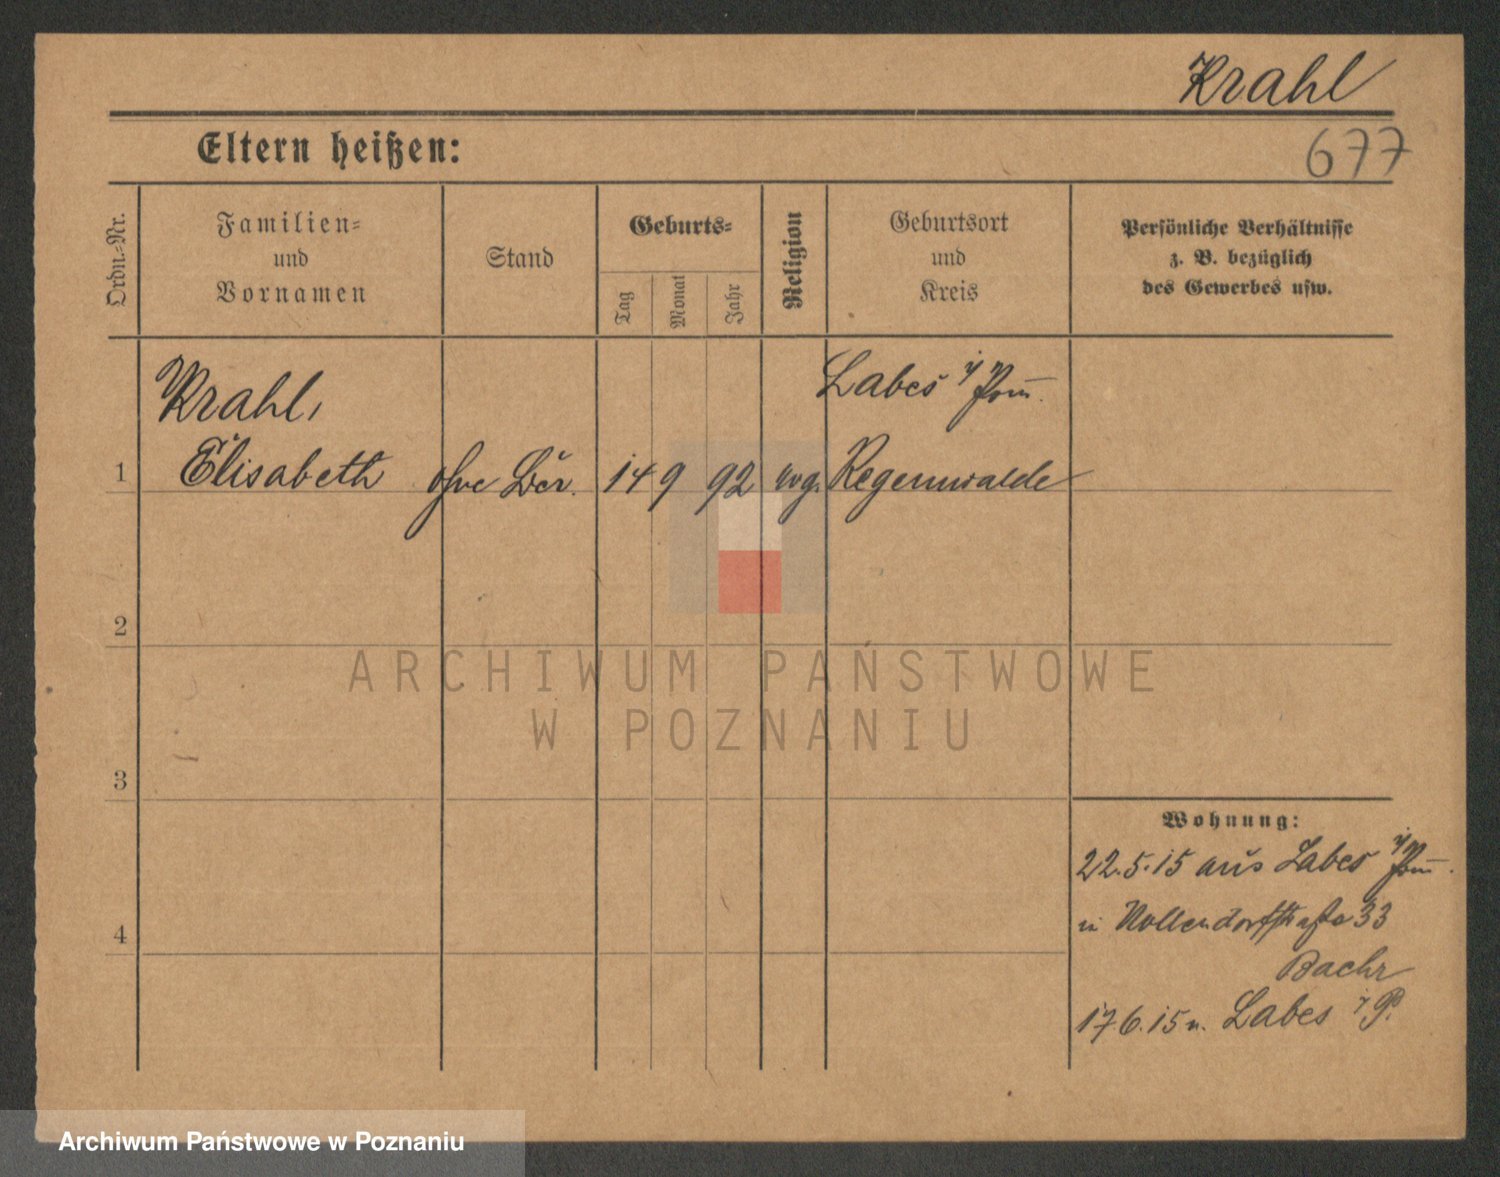 Krahl
677
Eltern heißen:
Ordn.=Nr.
Familien=
und
Vornamen
Stand
Geburts=
Tag
Monat
Jahr
Religion
Geburtsort
und
Kreis
Persönliche Verhältnisse
z. B. bezüglich
des Gewerbes usw.
Krahl,
Labes i/Pom.
1
Elisabeth ohne Ber. 14 9 92 evg. Regenwalde
2
3
4
Wohnung:
22.5.15 aus Labes i/Pom.
in Nollendorfstraße 33
Baehr
17 6.15 n. Labes i P.
ARCHIWUM PAŃSTWOWE
W POZNANIU
Archiwum Państwowe w Poznaniu